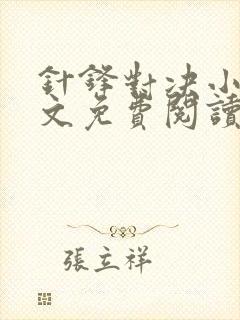 針鋒對決小
文免費閱讀
張立祥